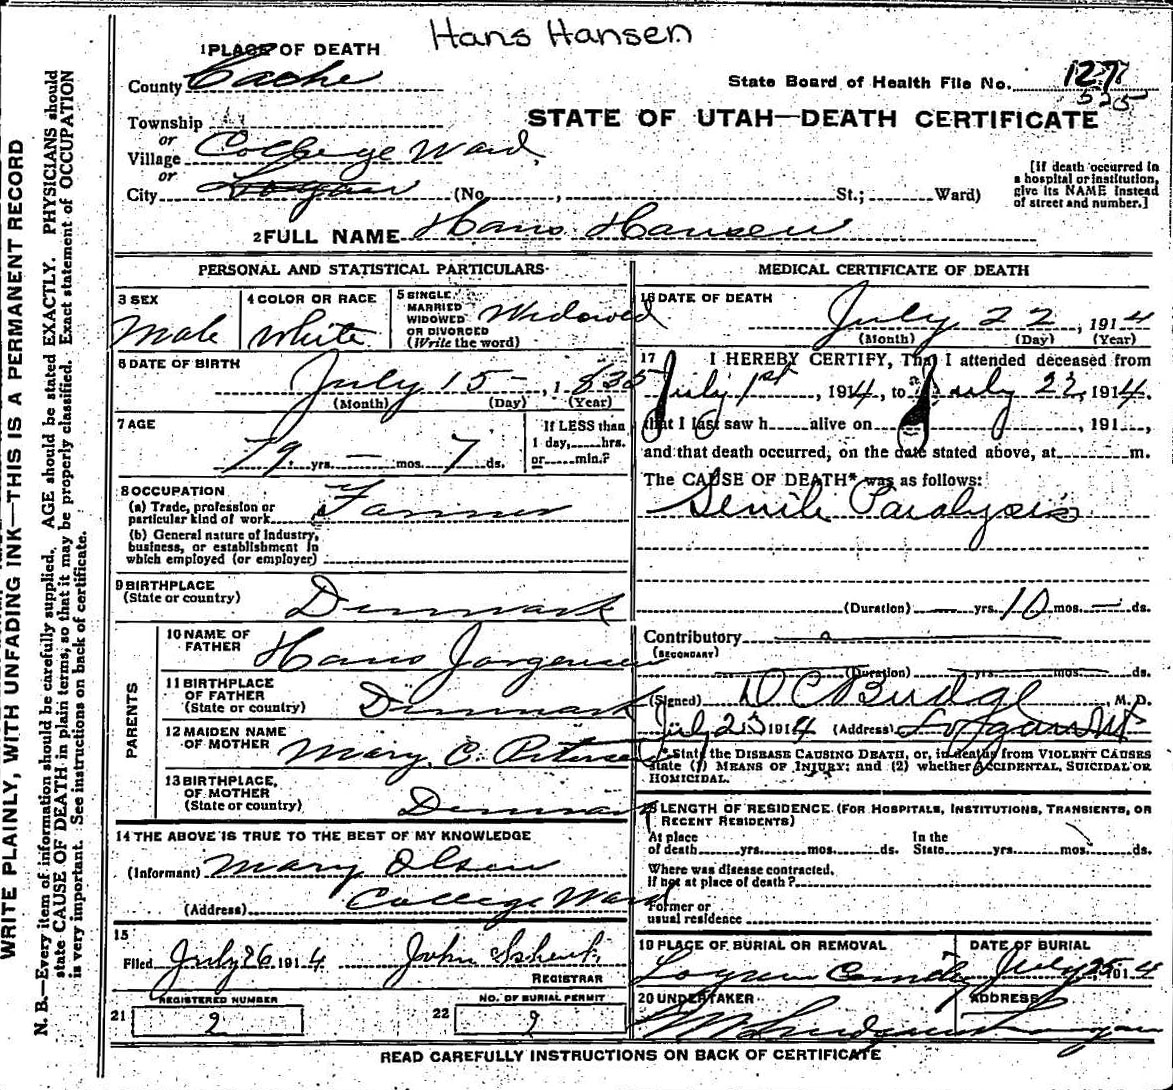 Hans Hansen
1 PLACE OF DEATH
County Cache
State Board of Health File No. 127
525
STATE OF UTAH—DEATH CERTIFICATE
Township
or
Village College Ward,
or
City Logan (No. , St.; Ward)
[If death occurred in a hospital or institution, give its NAME instead of street and number.]
2 FULL NAME Hans Hansen
PERSONAL AND STATISTICAL PARTICULARS
3 SEX
Male
4 COLOR OR RACE
White
5 SINGLE,
MARRIED
WIDOWED
OR DIVORCED
(Write the word)
Widowed
6 DATE OF BIRTH
July 15 — , 1835
(Month) (Day) (Year)
7 AGE
79 yrs. — mos. 7 ds.
If LESS than
1 day, hrs.
or min.?
8 OCCUPATION
(a) Trade, profession or
particular kind of work Farmer
(b) General nature of industry,
business, or establishment in
which employed (or employer)
9 BIRTHPLACE
(State or country) Denmark
PARENTS
10 NAME OF
FATHER Hans Jorgensen
11 BIRTHPLACE
OF FATHER
(State or country) Denmark
12 MAIDEN NAME
OF MOTHER Mary C. Petersen
13 BIRTHPLACE,
OF MOTHER
(State or country) Denmark
14 THE ABOVE IS TRUE TO THE BEST OF MY KNOWLEDGE
(Informant) Mary Olsen
(Address) College Ward
15
Filed July 26 1914 John
REGISTRAR
REGISTERED NUMBER
21 2
NO. OF BURIAL PERMIT
22 2
MEDICAL CERTIFICATE OF DEATH
16 DATE OF DEATH
July 22, 1914
(Month) (Day) (Year)
17 I HEREBY CERTIFY, That I attended deceased from
July 1st, 1914, to July 22, 1914.
that I last saw h alive on , 191 ,
and that death occurred, on the date stated above, at m.
The CAUSE OF DEATH* was as follows:
Senile Paralysis
(Duration) — yrs. 10 mos. — ds.
Contributory
(SECONDARY)
(Duration) yrs. mos. ds.
(Signed) D C Budge M. D.
July 25 1914 (Address) Logan Ut
*State the DISEASE CAUSING DEATH, or, in deaths from VIOLENT CAUSES
state (1) MEANS OF INJURY; and (2) whether ACCIDENTAL, SUICIDAL OR
HOMICIDAL.
18 LENGTH OF RESIDENCE (FOR HOSPITALS, INSTITUTIONS, TRANSIENTS, OR
RECENT RESIDENTS)
At place
of death yrs. mos. ds.
In the
State yrs. mos. ds.
Where was disease contracted,
If not at place of death?
Former or
usual residence
19 PLACE OF BURIAL OR REMOVAL
Logan
DATE OF BURIAL
July 25 1914
20 UNDERTAKER
ADDRESS
Logan
READ CAREFULLY INSTRUCTIONS ON BACK OF CERTIFICATE
WRITE PLAINLY, WITH UNFADING INK—THIS IS A PERMANENT RECORD
N. B.—Every item of information should be carefully supplied. AGE should be stated EXACTLY. PHYSICIANS should
state CAUSE OF DEATH in plain terms, so that it may be properly classified. Exact statement of OCCUPATION
is very important. See instructions on back of certificate.